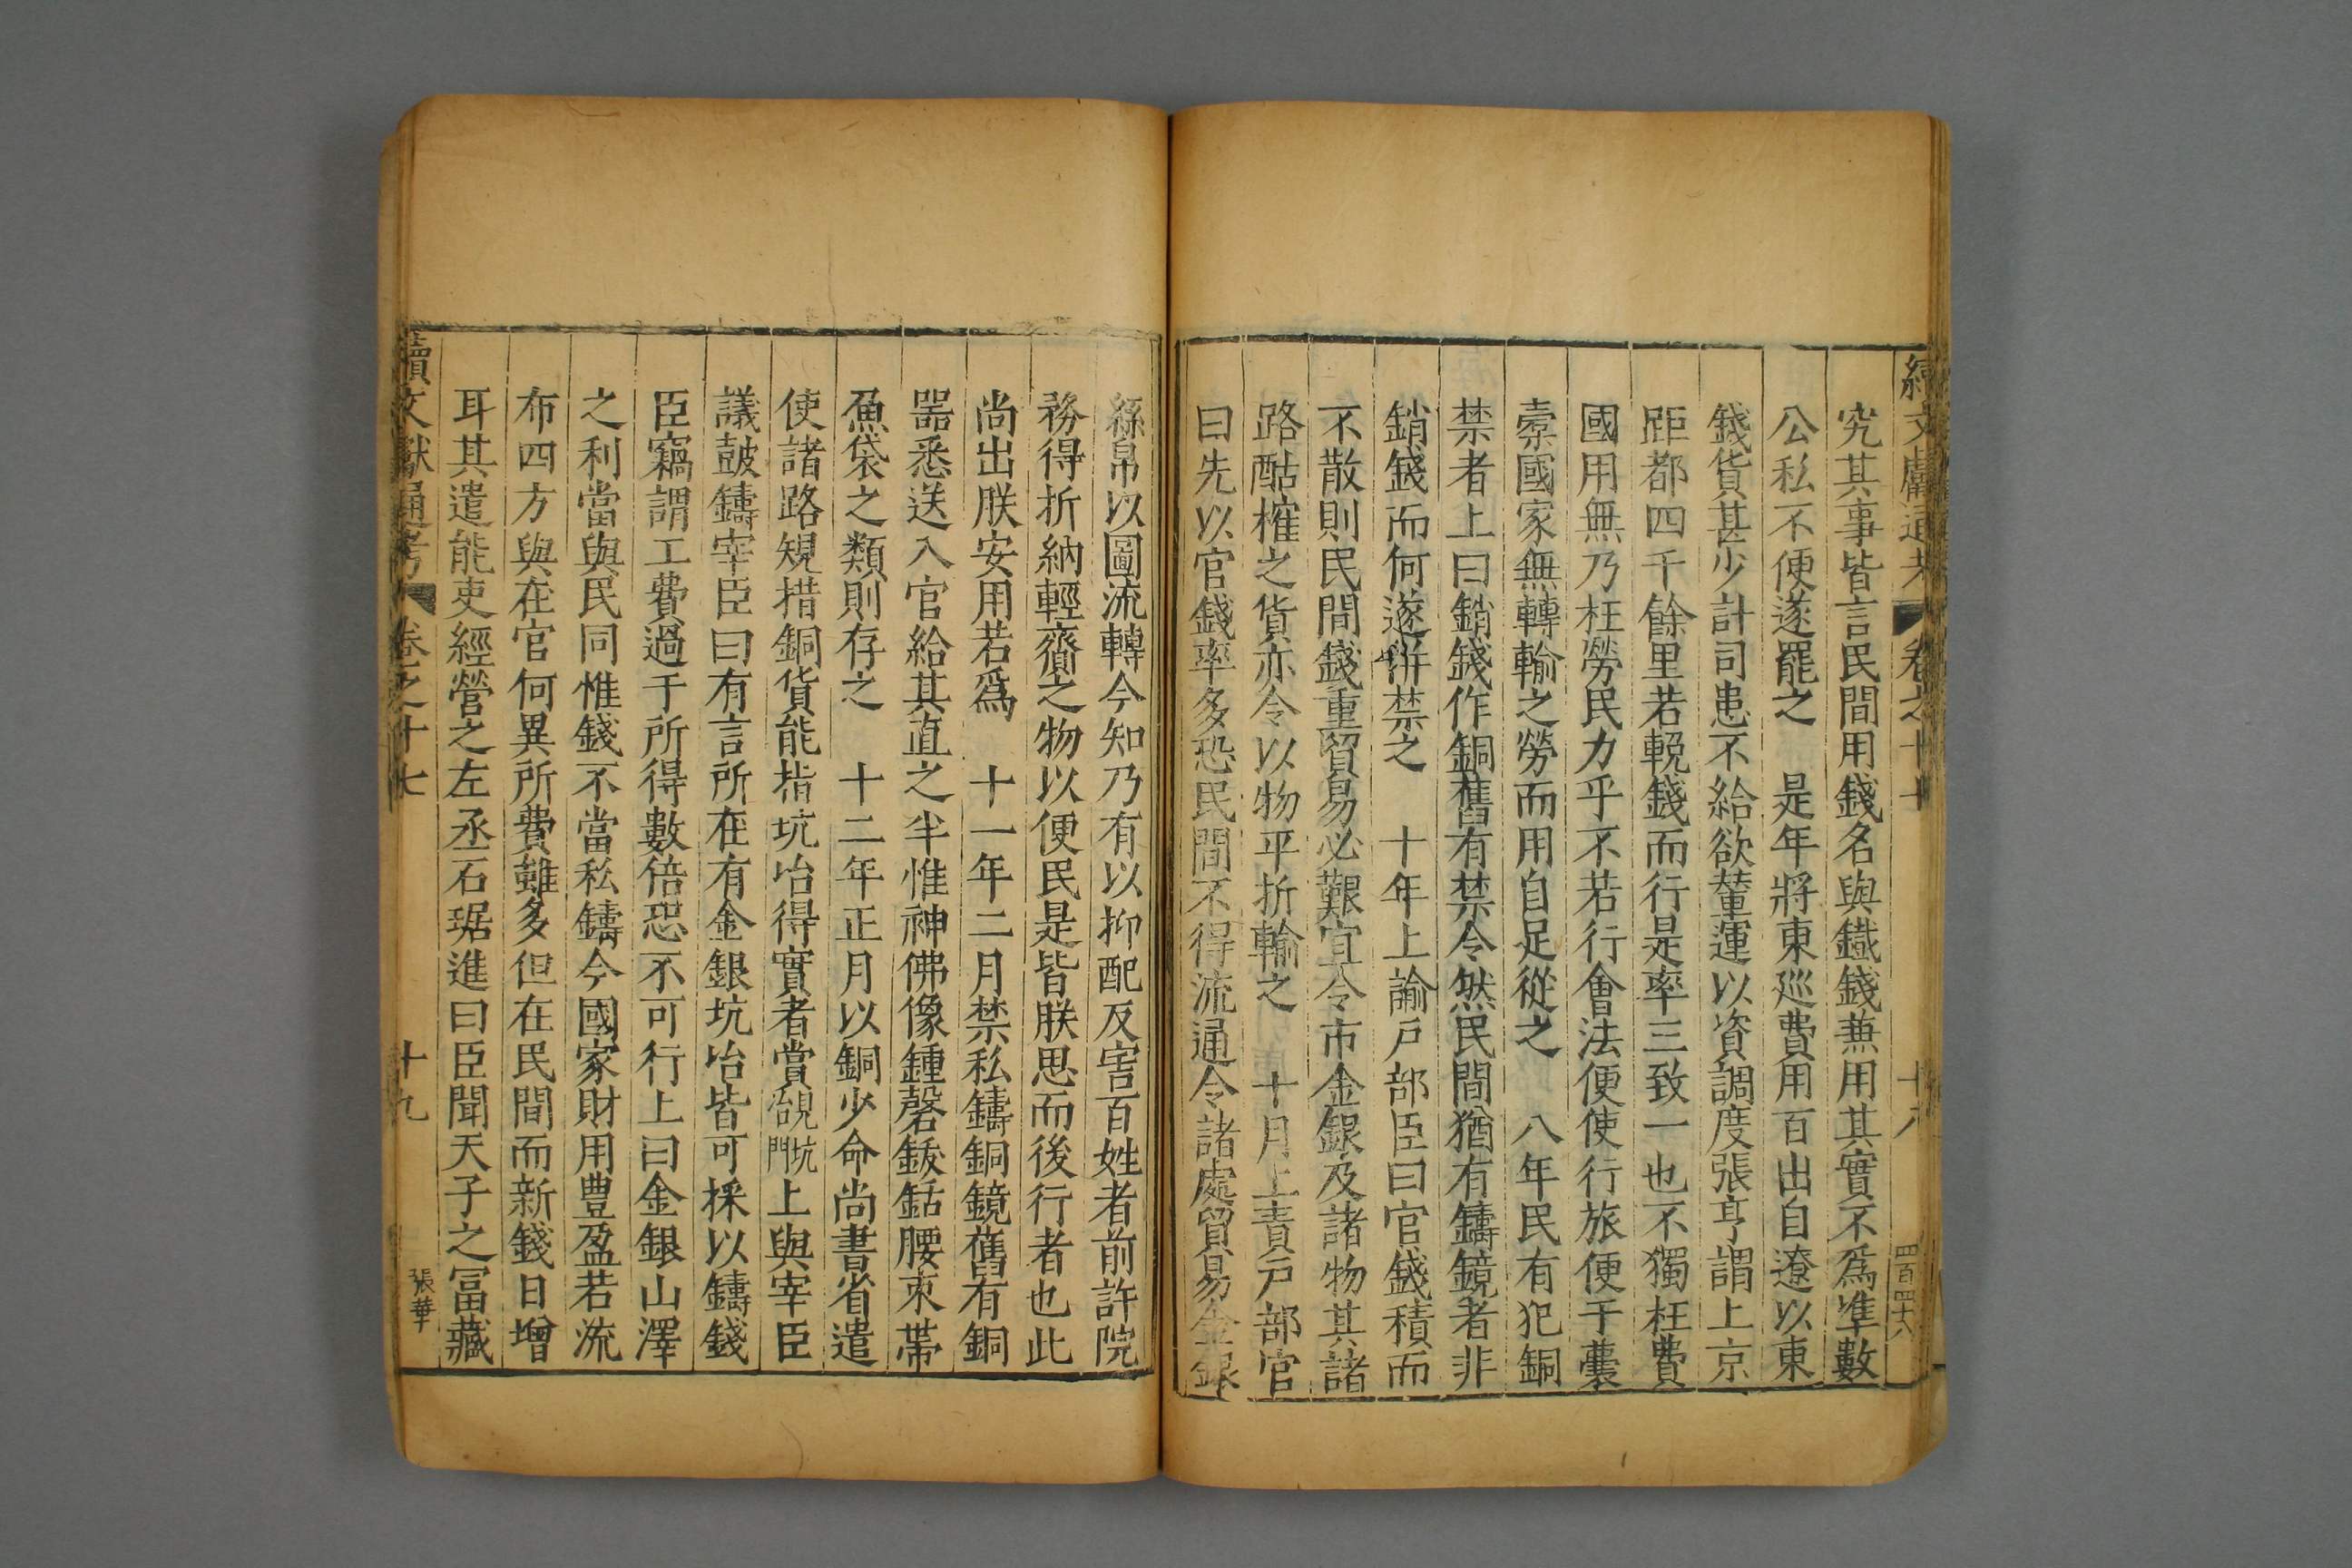 續文獻通考 卷之十七 十八 四百四十八
究其事皆言民間用錢名與鐵錢兼用其實不爲準數
公私不便遂罷之 是年將東廵費用百出自遼以東
錢貨甚少計司患不給欲輦運以資調度張亨謂上京
距都四千餘里若輓錢而行是率三致一也不獨枉費
國用無乃枉勞民力乎不若行會法便使行旅便于囊
橐國家無轉輸之勞而用自足從之 八年民有犯銅
禁者上曰銷錢作銅舊有禁令然民間猶有鑄鏡者非
銷錢而何遂併禁之 十年上諭戸部臣曰官錢積而
不散則民間錢重貿易必艱宜令市金銀及諸物其諸
路酤榷之貨亦令以物平折輸之 十月上責戸部官
曰先以官錢率多恐民間不得流通令諸處貿易金銀
絲帛以圖流轉今知乃有以抑配反害百姓者前許院
務得折納輕齎之物以便民是皆朕思而後行者也此
尚出朕安用若爲 十一年二月禁私鑄銅鏡舊有銅
器悉送入官給其直之半惟神佛像鍾磬鈸鈷腰束帶
魚袋之類則存之 十二年正月以銅少命尚書省遣
使諸路規措銅貨能指坑冶得實者賞覘坑門 上與宰臣
議鼓鑄宰臣曰有言所在有金銀坑冶皆可採以鑄錢
臣竊謂工費過于所得數倍恐不可行上曰金銀山澤
之利當與民同惟錢不當私鑄今國家財用豊盈若流
布四方與在官何異所費雖多但在民間而新錢日增
耳其遣能吏經營之左丞石琚進曰臣聞天子之冨藏
續文獻通考 卷之十七 十九 張華